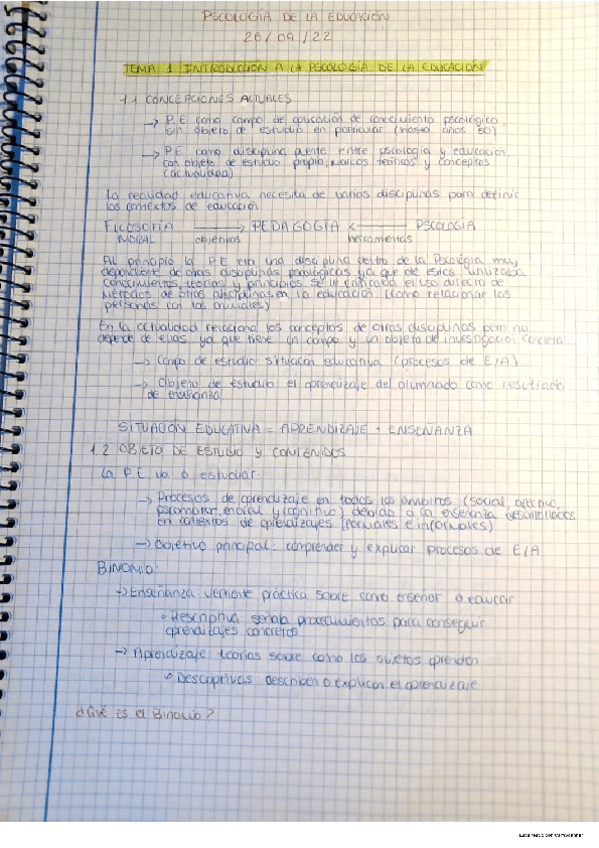 PSCOLOGÍA DE LA EDUCACIÓN
26/09/22
TEMA 1 INTRODUCCIÓN A LA PSCOLOGÍA DE LA EDUCACIÓN
1.1 CONCEPCIONES ACTUALES
→ P.E como campo de aplicación de conocimiento pscológico
sin objeto de estudio en particular (hasta años 50)
→ P.E como disciplina puente entre pscología y educación
con objeto de estudio propio, marcos teóricos y conceptos
(actualidad)
La realidad educativa necesita de varias disciplinas para definir
los contextos de educación
FILOSOFÍA → PEDAGOGÍA ← PSCOLOGÍA
MORAL objetivos herramientas
Al principio la P.E era una disciplina dentro de la Pscología muy
dependiente de otras disciplinas pscológicas ya que de estas utilizaba
conocimientos, teorías y principios. Se le criticaba el uso directo de
métodos de otras disciplinas en la educación (como relacionar las
personas con los animales)
En la actualidad relaciona los conceptos de otras disciplinas pero no
depende de ellas ya que tiene un campo y un objeto de investigación concreta.
→ Campo de estudio: situación educativa (procesos de E/A)
→ Objeto de estudio: el aprendizaje del alumnado como resultado
de enseñanza
SITUACIÓN EDUCATIVA = APRENDIZAJE + ENSEÑANZA
1.2 OBJETO DE ESTUDIO Y CONTENIDOS
La P.E va a estudiar:
→ Procesos de aprendizaje en todos los ámbitos (social, afectivo,
pscomotor, moral y cognitivo) debido a la enseñanza desarrollados
en contextos de aprendizajes (formales e informales)
→ Objetivo principal: comprender y explicar procesos de E/A
BINOMIO:
→ Enseñanza: vertiente práctica sobre como enseñar o educar
• Prescriptiva: señala procedimientos para conseguir
aprendizajes concretos
→ Aprendizaje: teorías sobre como los sujetos aprenden
• Descriptivas: describen o explican el aprendizaje
¿Qué es el Binomio?